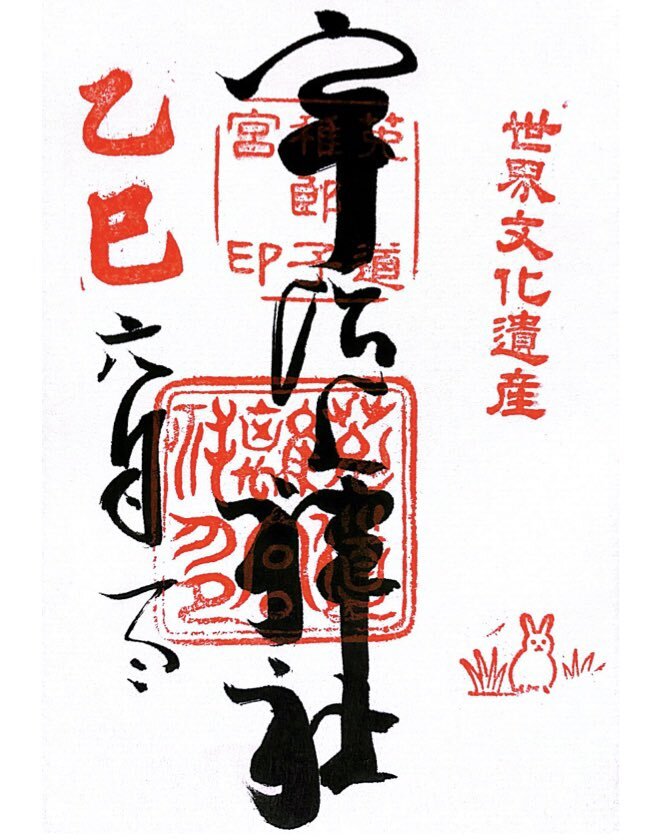 世界文化遺産
宇治上神社
菟道
稚郎子
宮印
乙巳
六月